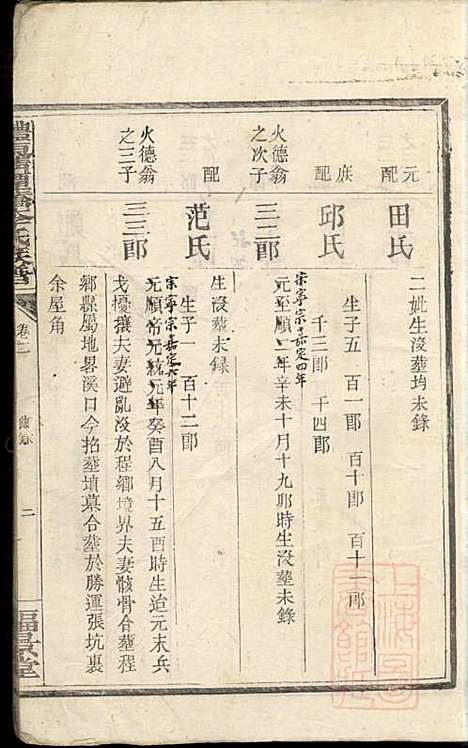 元配 田氏 二妣生沒塟均未錄
族配 邱氏 生子五 百一郎 百十郎 百十二郎
千三郎 千四郎
宋寧宗嘉定四年
火德翁之次子 三二郎 元至順二年辛未十月十九卯時生沒塟未錄
配 范氏 生沒塟未錄
生子一 百十二郎
宋寧宗嘉定六年
火德翁之三子 三三郎 元順帝元統元年癸酉八月十五酉時生迨元末兵
戈擾攘夫妻避亂沒於程鄉境界夫妻骸骨合塟程
鄉縣屬地畧溪口今拾塟墳墓合塟於勝運張坑裏
余屋角
氏族譜
卷二
二